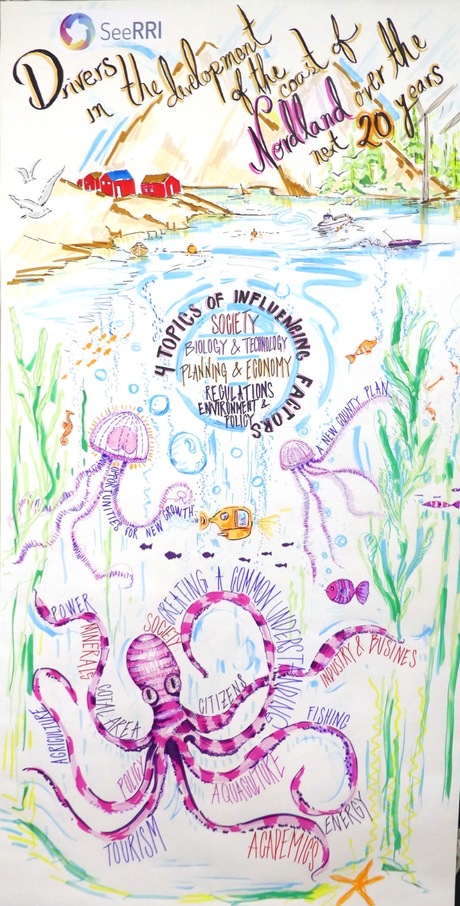 SeeRRI
Drivers
in the development
of the coast of
Nordland over the
next 20 years
4 TOPICS OF INFLUENCING FACTORS
SOCIETY
BIOLOGY & TECHNOLOGY
PLANNING & ECONOMY
REGULATIONS
ENVIRONMENT &
POLICY
A NEW COUNTY PLAN
OPPORTUNITIES FOR NEW GROWTH
CREATING A COMMON UNDERSTANDING
POWER
MINERALS
SOCIETY
INDUSTRY & BUSINES
COTAL AREA
CITIZENS
AGRICULTURE
FISHING
POLICY
AQUACULTURE
TOURISM
ENERGY
ACADEMICS